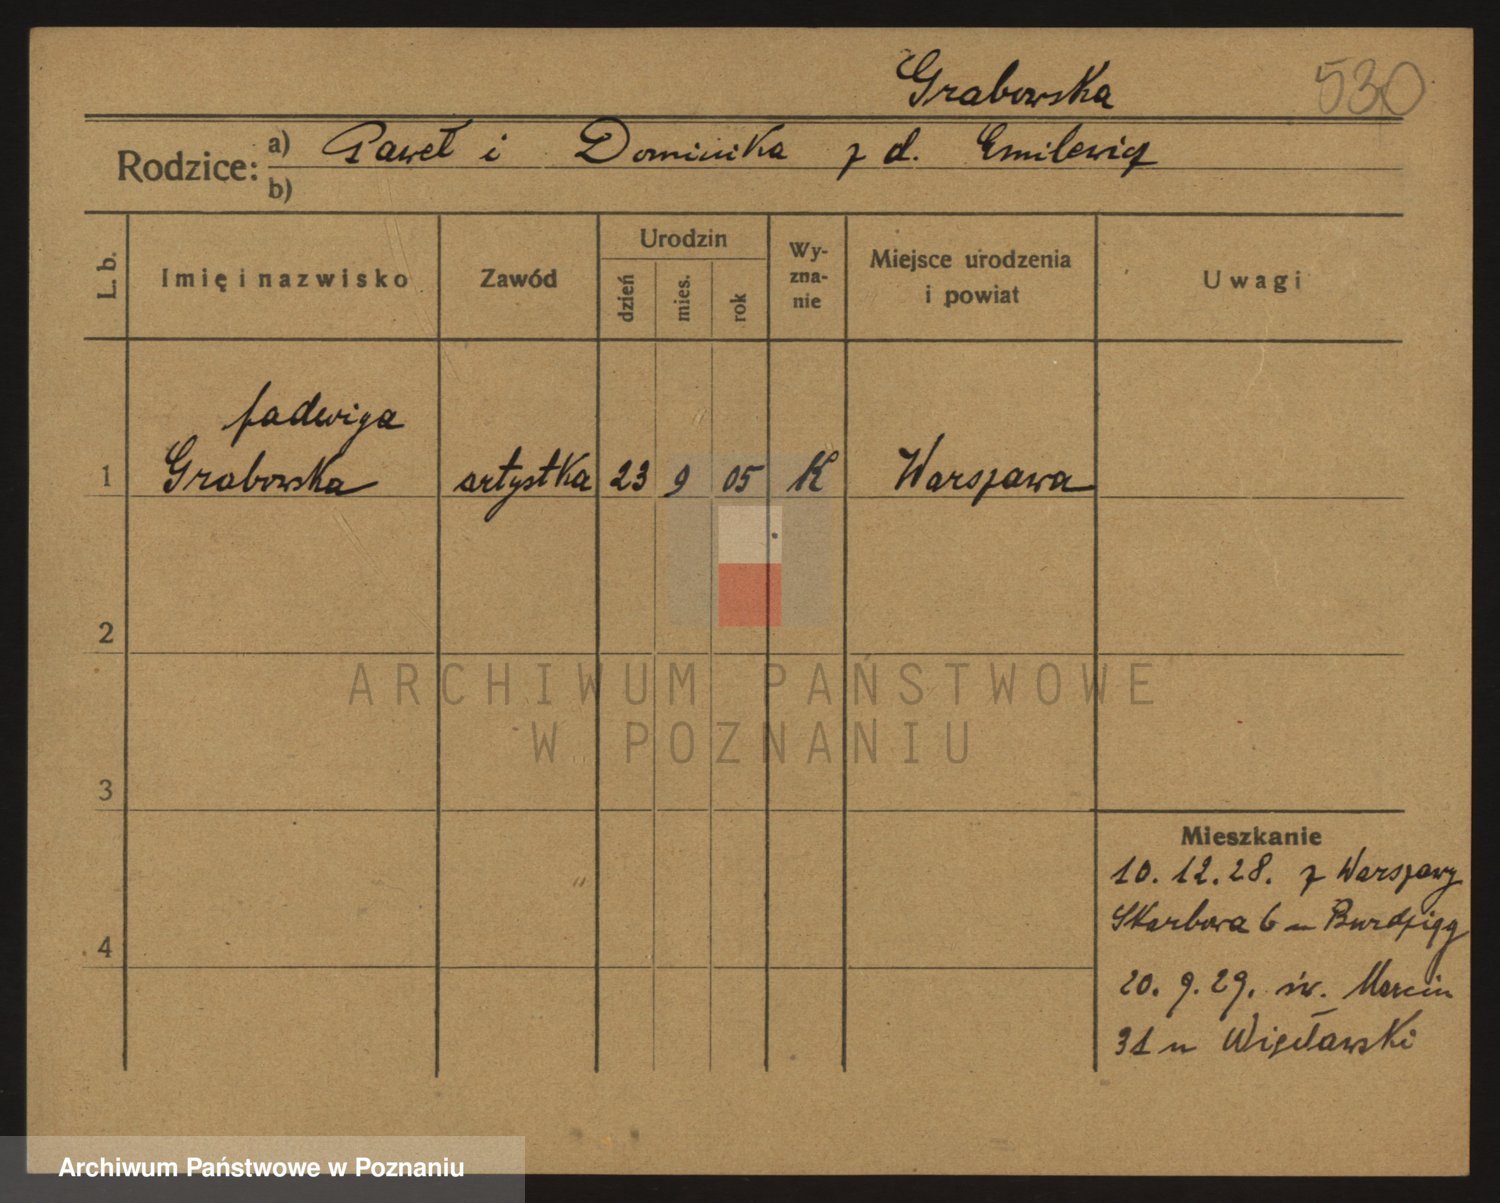 Grabowska 530
Rodzice: a) Paweł i Dominika z d. Emilewicz
b)
L. b. Imię i nazwisko Zawód Urodzin dzień mies. rok Wyzna-nie Miejsce urodzenia i powiat Uwagi
Jadwiga
1 Grabowska artystka 23 9 05 K Warszawa
2
ARCHIWUM PAŃSTWOWE
W POZNANIU
3
Mieszkanie
10. 12. 28. z Warszawy
Skarbowa 6 u
4
20. 9. 29. św. Marcin
31 u
Archiwum Państwowe w Poznaniu